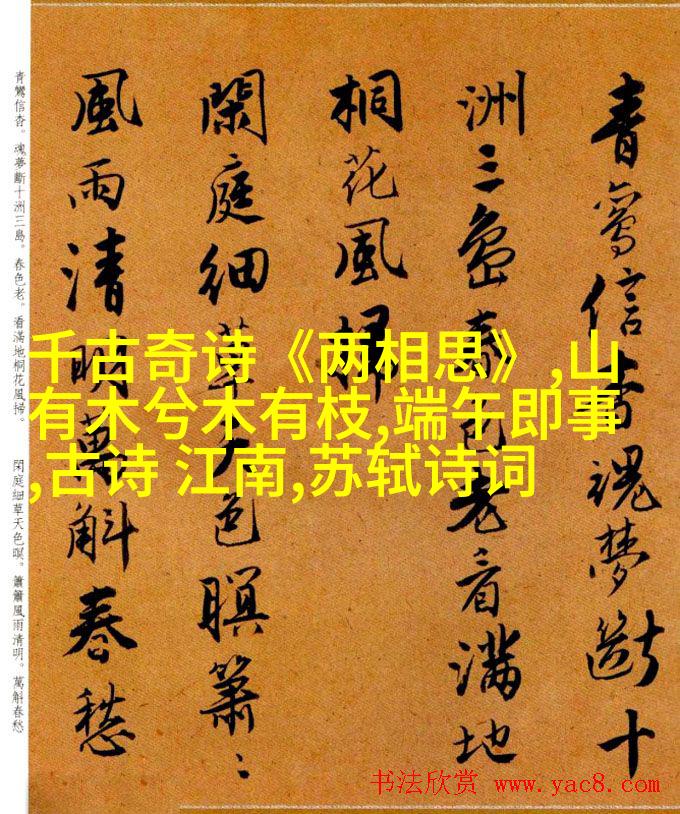 青鸞信杳魂夢斷十
洲三島春色老看滿地
桐花風掃
閑庭細草天色暝簫〻
風雨清明萬斛春愁
青鸞信杳。魂夢斷十洲三島。春色老。看滿地桐花風掃。 閑庭細草天色暝。簫簫風雨清明。萬斛春愁
千古奇诗《两相思》,山
有木兮木有枝,端午即事
,古诗 江南,苏轼诗词
书法欣赏 www.yac8.com